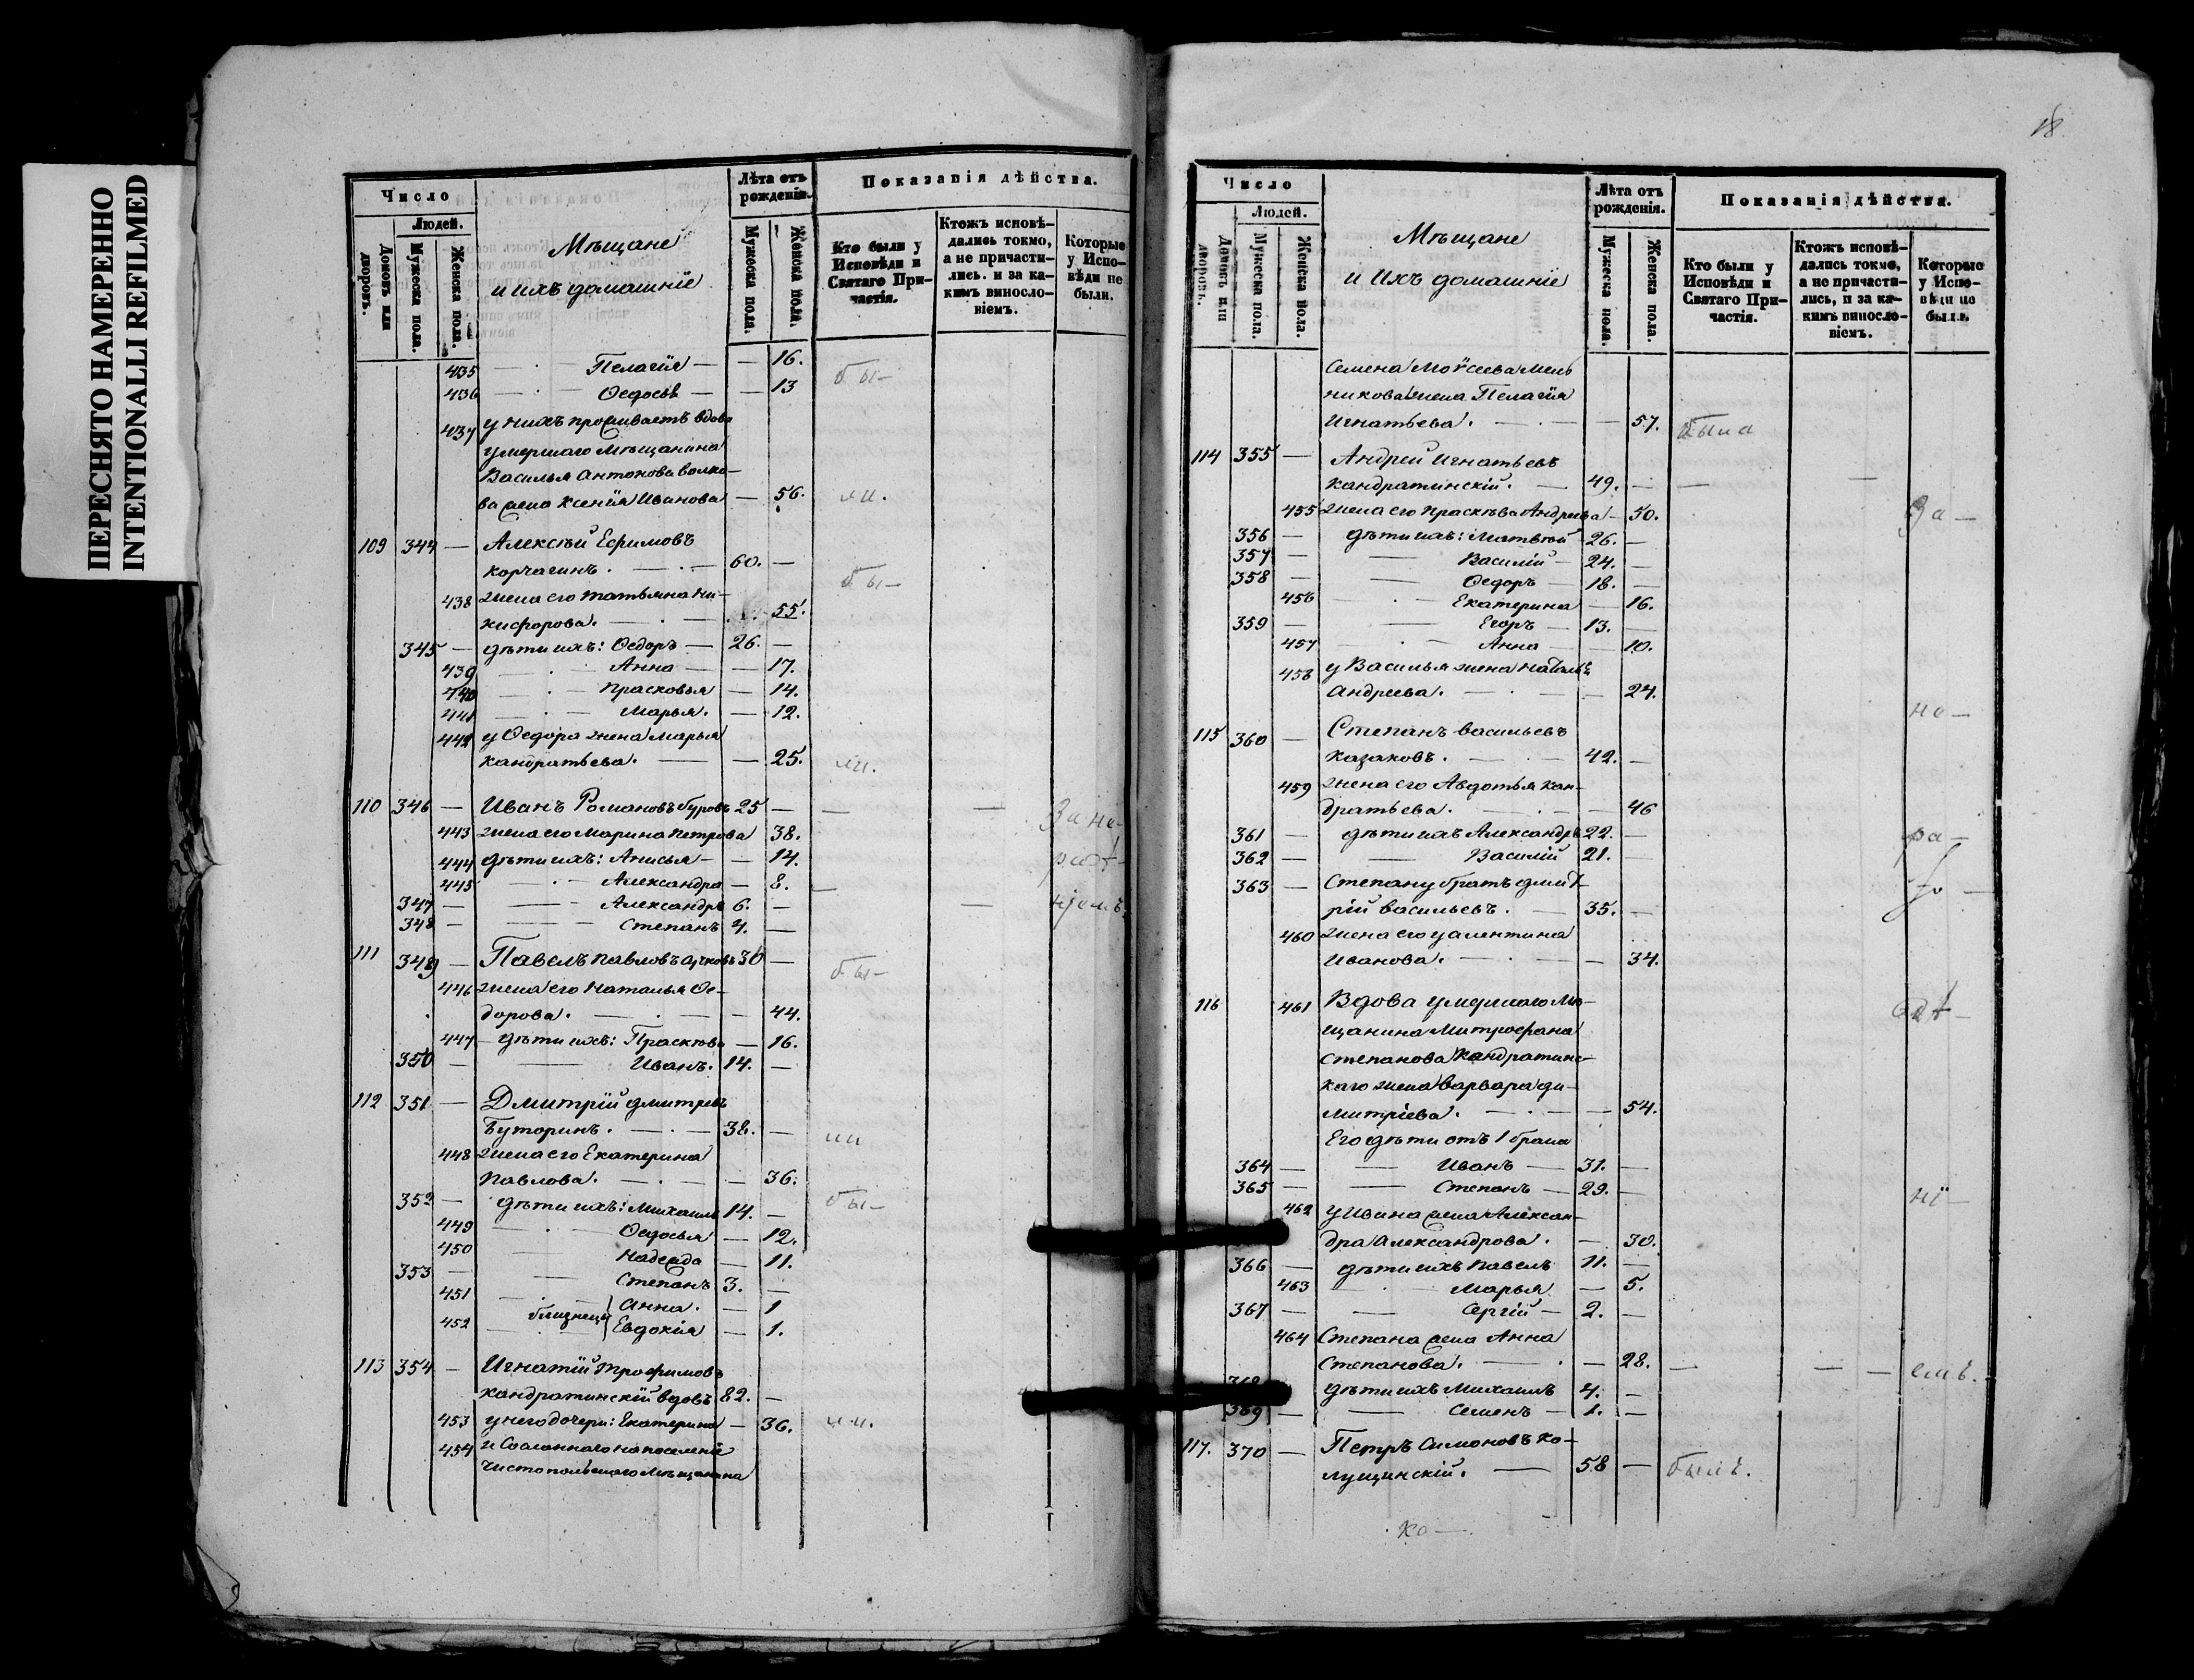 ПЕРЕСНЯТО НАМЕРЕННО
INTENTIONALLI REFILMED
Число
Людей.
Домовъ или дворовъ.
Мужеска пола.
Женска пола.
Мѣщане
и ихъ домашніе
Лѣта отъ рожденія.
Мужеска пола.
Женска пола.
Показанія дѣйства.
Кто были у Исповѣди и Святаго Причастія.
Ктожъ исповѣдались токмо, а не причастились. и за какимъ винословіемъ.
Которые у Исповѣди не были.
435 — Пелагія — — 16. бы—
436 — Ѳедосья — — 13
437 у нихъ проживаетъ вдова
умершаго мѣщанина
Василья Антонова Волко-
ва жена Ксенія Иванова — 56. ли.
109 344 — Алексѣй Ефимовъ
Корчагинъ. — 60. — бы—
438 жена его Татьяна Ни-
кифорова. — 55.
345 — дѣти ихъ: Ѳедоръ — 26. —
439 — Анна — — 17.
440 — Прасковья — 14.
441 — Марья. — 12.
442 у Ѳедора жена Марья
Кандратьева. — — 25. ли.
110 346 — Иванъ Романовъ Буровъ 25 — — — За не-
443 жена его Марина Петрова 38.
444 дѣти ихъ: Анисья — — 14. рад-
445 — Александра — 8. —
347 — — Александръ 6. — — ніемъ.
348 — — Степанъ 4. —
111 349 — Павелъ Павловъ 36 — бы—
446 жена его Наталья Ѳе-
дорова. — — 44.
447 — дѣти ихъ: Прасковья — 16.
350 — — Иванъ. 14. —
112 351 — Дмитрій Дмитріевъ
Буторинъ. — 38. — ли
448 жена его Екатерина
Павлова. — — 36.
352 — дѣти ихъ: Михаилъ 14. — бы—
449 — Ѳедосья — 12.
450 Надежда — 11.
353 — — Степанъ 3. —
451 — Анна. — 1
близнецы
452 — Евдокія — 1.
113 354 — Игнатій Трофимовъ
Кандратинскій вдовъ 82. —
453 у него дочери: Екатерина — 36. ли.
454 и Сосланнаго на поселеніе
Чистопольскаго мѣщанина
18
Число
Людей.
Домовъ или дворовъ.
Мужеска пола.
Женска пола.
Мѣщане
и Ихъ домашніе
Лѣта отъ рожденія.
Мужеска пола.
Женска пола.
Показанія дѣйства.
Кто были у Исповѣди и Святаго Причастія.
Ктожъ исповѣдались токмо, а не причастились, и за какимъ винословіемъ.
Которые у Исповѣди не были.
Семена Моѵсеева Мель
никова жена Пелагія
Игнатьева. — — 57. была
114 355 — Андрей Игнатьевъ
Кандратинскій. — 49. — — —
455 жена его Прасковья Андреева — 50. За —
356 — дѣти ихъ: Матвѣй 26. —
357 — — Василій — 24. —
358 — — Ѳедоръ — 18. —
456 — Екатерина — 16.
359 — — Егоръ — 13. —
457 — Анна — 10.
458 у Василья жена Наталья
Андреева. — — 24. не —
115 360 — Степанъ Васильевъ
Казаковъ. — 42. —
459 жена его Авдотья Кан-
дратьева. — — 46
361 — дѣти ихъ Александръ 22. — ра —
362 — — Василій 21. —
363 — Степану братъ Дмит-
рій Васильевъ. — 35. —
460 жена его
Иванова. — — 34.
116 461 Вдова умершаго мѣ-
щанина Митрофана
Степанова Кандратинс-
каго жена Варвара Ди-
митріева. — — 54.
Его дѣти отъ 1 брака
364 — — Иванъ — 31. —
365 — — Степанъ — 29. — ні —
462 у Ивана жена Алексан-
дра Александрова. — 30.
366 — дѣти ихъ Павелъ 11. —
463 — Марья — 5.
367 — — Сергій — 2. —
464 Степана жена Анна
Степанова. — — 28. — — — емъ.
368 дѣти ихъ Михаилъ 4. —
369 — — Семенъ — 1. —
117. 370 — Петръ Симоновъ Ко-
лущинскій. — 58 — былъ.